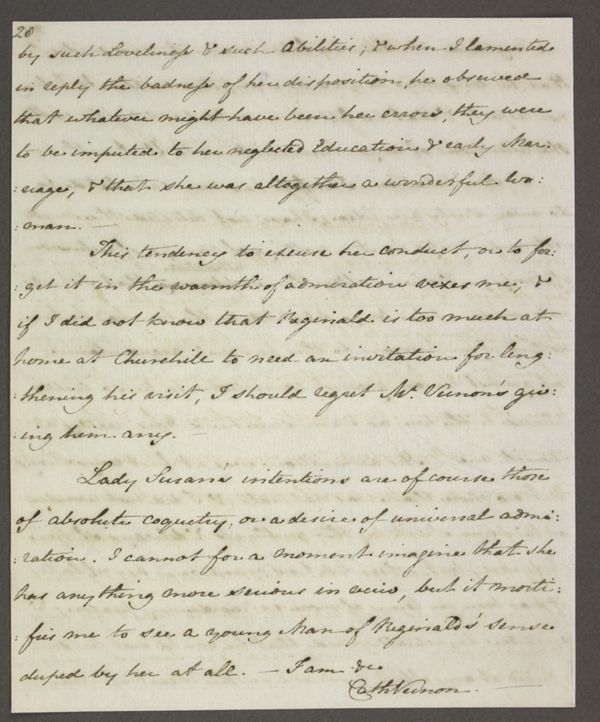 28
by such Loveliness & such Abilities; & when I lamented
in reply the badness of her disposition, he observed
that whatever might have been her errors, they were
to be imputed to her neglected Education & early Mar:
:riage, & that she was altogether a wonderful Wo:
:man. —
This tendency to excuse her conduct, or to for:
:get it in the warmth of admiration vexes me; &
if I did not know that Reginald is too much at
home at Churchill to need an invitation for leng:
:thening his visit, I should regret Mr. Vernon's giv:
:ing him any. —
Lady Susan's intentions are of course those
of absolute coquetry, or a desire of universal admi:
:ration. I cannot for a moment imagine that she
has anything more serious in veiw, but it morti:
:fies me to see a young Man of Reginald's sense
duped by her at all. — I am &c
Cath Vernon. —